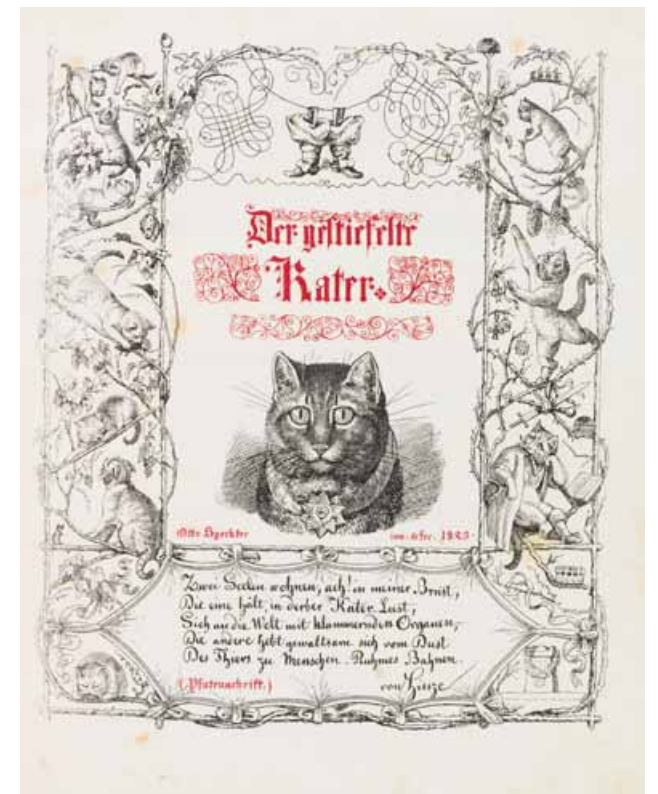 Der gestiefelte
Kater.
Otto Speckter
inv. & fec. 1843.
Zwei Seelen wohnen, ach! in meiner Brust,
Die eine hält, in derber Kater-Lust,
Sich an die Welt mit klammernden Organen,
Die andere hebt gewaltsam sich vom Dust
Des Thiers zu Menschen-Ruhmes Bahnen.
(Pfotenschrift.)
von Hinze